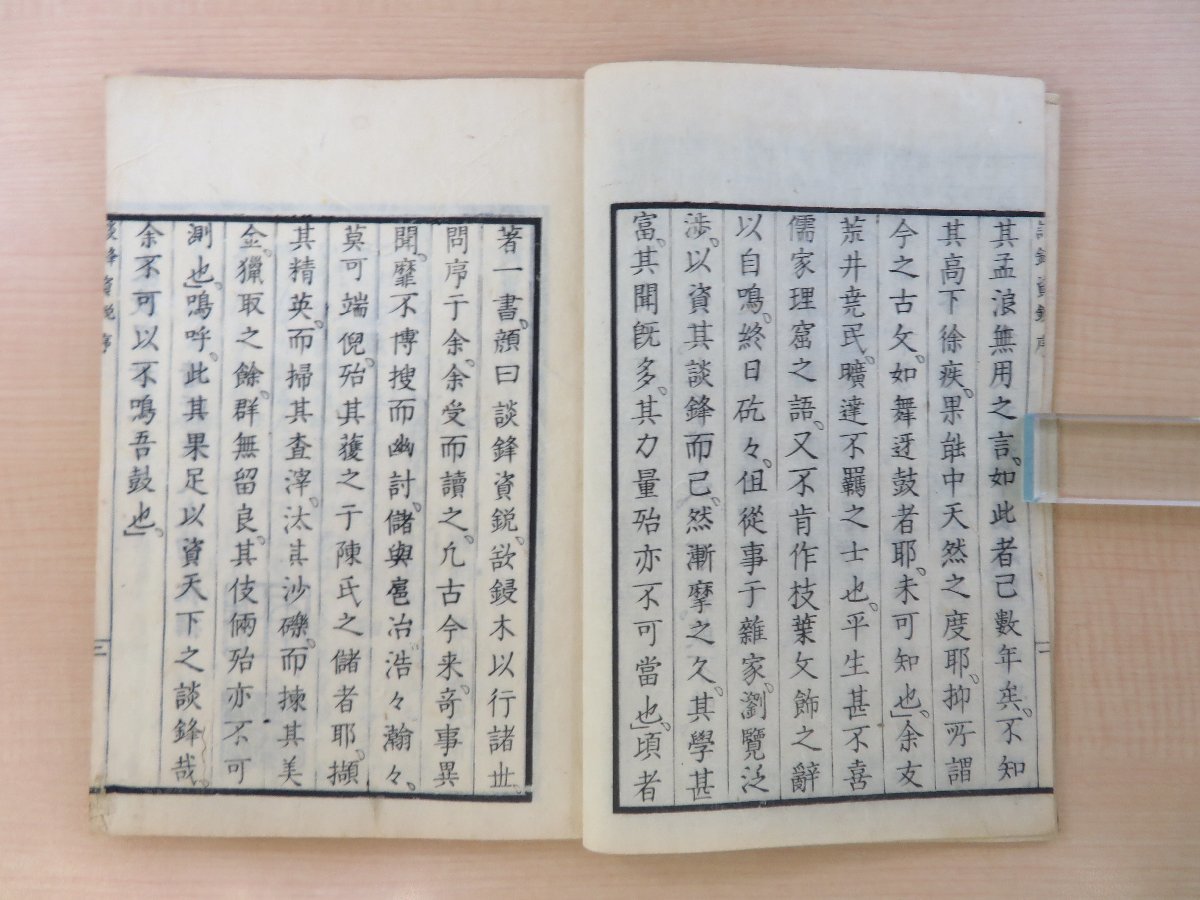 其孟浪無用之言。如此者已數年矣。不知
其高下徐疾。果能中天然之度耶。抑所謂
今之古文。如舞迓鼓者耶。未可知也」余友
荒井堯民。曠達不羈之士也。平生甚不喜
儒家理窟之語。又不肯作枝葉文飾之辭
以自鳴。終日矻々。但從事于雜家。瀏覽泛
渉。以資其談鋒而已。然漸摩之久。其學甚
富。其聞既多。其力量殆亦不可當也」頃者
著一書。顔曰談鋒資鋭。欲鋟木以行諸世。
問序于余。余受而讀之。凢古今来。奇事異
聞。靡不博搜而幽討。儲與扈冶。浩々瀚々。
莫可端倪。殆其獲之于陳氏之儲者耶。擷
其精英。而掃其查滓。汰其沙礫。而揀其美
金。獵取之餘。群無留良。其伎倆殆亦不可
測也。嗚呼。此其果足以資天下之談鋒哉。
余不可以不鳴吾鼓也」
談鋒資鋭序
三